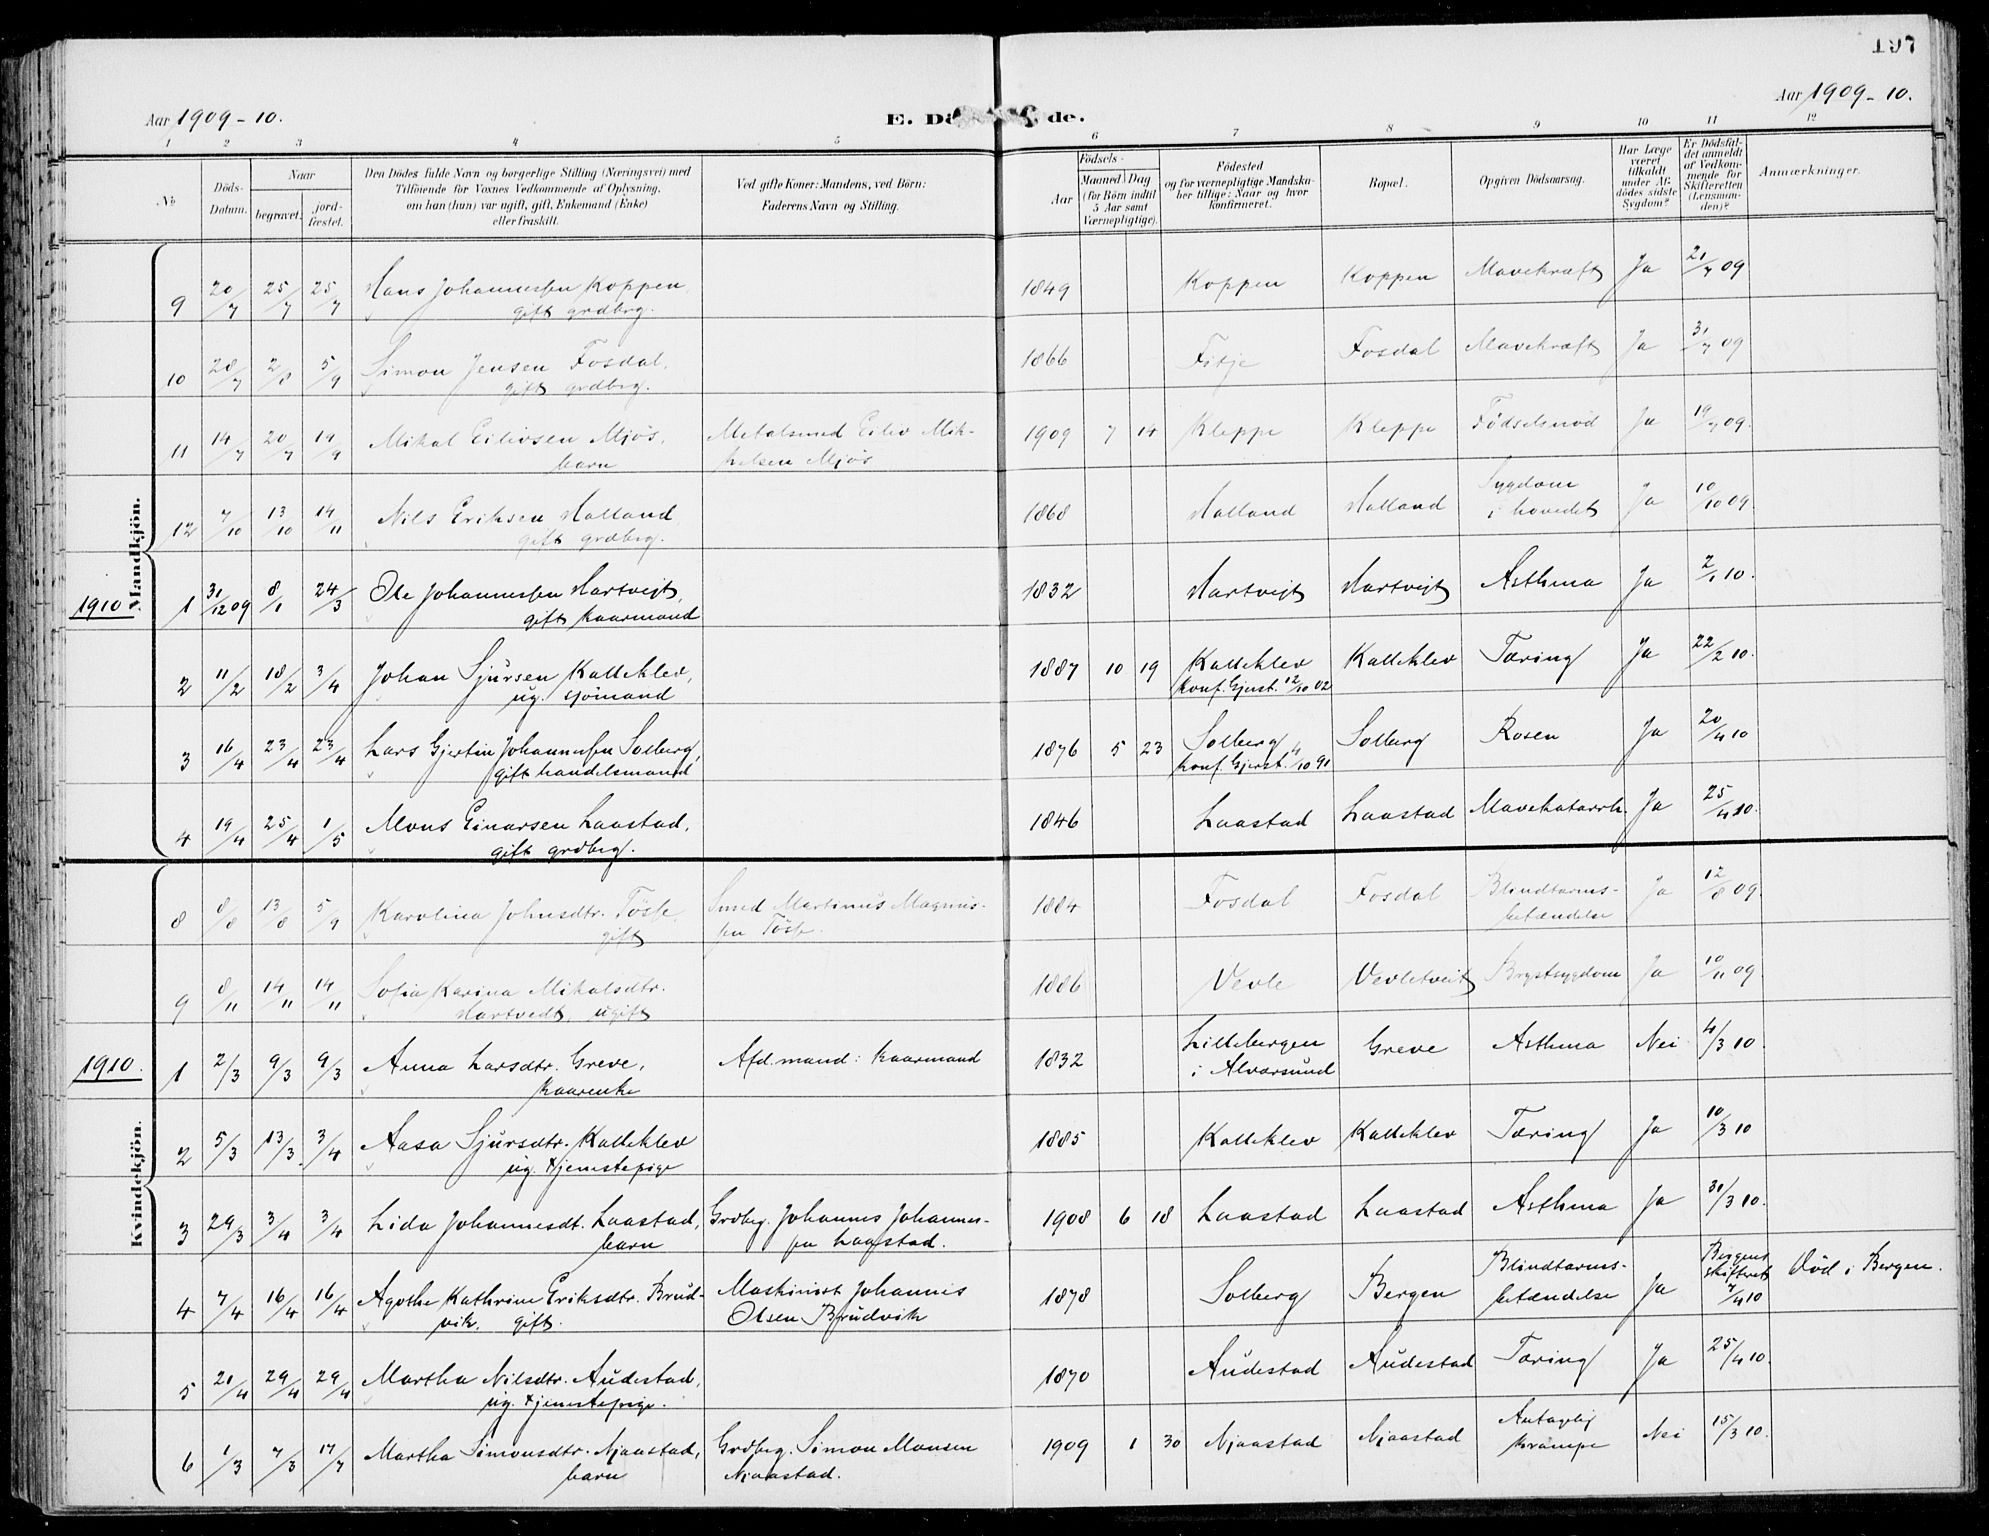 197
Aar 1909-10.
E. Dö de.
Aar 1909-10.
1 2 3 4 5 6 7 8 9 10 11 12
№
Döds-Datum.
Naar
begravet.
jord-fæstet.
Den Dödes fulde Navn og borgerlige Stilling (Næringsvei) med
Tilföiende for Voxnes Vedkommende af Oplysning,
om han (hun) var ugift, gift, Enkemand (Enke)
eller fraskilt.
Ved gifte Koner: Mandens, ved Börn:
Faderens Navn og Stilling.
Födsels-
Aar
Maaned Dag
(for Börn indtil
5 Aar samt
Værnepligtige).
Födested
og for værnepligtige Mandska-
ber tillige: Naar og hvor
konfirmeret.
Bopæl.
Opgiven Dödsaarsag.
Har Læge
været
tilkaldt
under Af-
dödes sidste
Sygdom?
Er Dödsfal-
det anmeldt
af Vedkom-
mende for
Skifteretten
(Lensman-
den)?
Anmærkninger.
Mandkjön.
9 20/7 25/7 25/7 Hans Johannessen Koppen, 1849 Koppen Koppen Mavekræft Ja 21/7 09
gift grdbrg.
10 28/7 2/8 5/9 Simon Jensen Fosdal, 1866 Fitje Fosdal Mavekræft Ja 31/7 09
gift grdbrg.
11 14/7 20/7 19/9 Mikal Eilivsen Mjös, Metalsmed Eiliv Mik- 1909 7 14 Kleppe Kleppe Födselsnöd Ja 19/7 09.
barn kelsen Mjös
12 7/10 13/10 14/11 Nils Eriksen Halland 1868 Halland Halland Sygdom i hovedet Ja 10/10 09
gift grdbrg.
1910
1 31/12 09 8/1 24/3 Ole Johannessen Hartveit, 1832 Hartveit Hartveit Asthma Ja 2/1 10.
gift kaarmand
2 11/2 18/2 3/4 Johan Sjursen Kalleklev, 1887 10 19 Kalleklev Kalleklev Tæring Ja 22/2 10.
ug. sjömand konf. Gjerst. 12/10 02
3 16/4 23/4 23/4 Lars Gjertin Johannessen Solberg, 1876 5 23 Solberg Solberg Rosen Ja 20/4 10
gift handelsmand konf. Gjerst. 4/10 91
4 19/4 25/4 1/5 Mons Einarsen Laastad, 1846 Laastad Laastad Mavekatarrh. Ja 25/4 10.
gift grdbrg.
Kvindekjön.
8 8/8 13/8 5/9 Karolina Johnsdtr. Tösse, Smed Martinus Magnus- 1884 Fosdal Fosdal Blindtarms- Ja 12/8 09.
gift sen Tösse. betændelse
9 8/11 14/11 14/11 Sofia Karina Mikalsdtr. 1886 Vevle Vevletveit Brystsygdom Ja 10/11 09
Hartvedt, ugift
1910.
1 2/3 9/3 9/3 Anna Larsdtr. Greve, Afd. mand: kaarmand 1832 Lillebergen Greve Asthma Nei 4/3 10.
kaarenke i Alversund
2 5/3 13/3 3/4 Aasa Sjursdtr. Kalleklev 1885 Kalleklev Kalleklev Tæring Ja 10/3 10
ug. tjenestepige
3 29/3 3/4 3/4 Lida Johannesdt. Laastad, Grdbrg. Johannes Johannes- 1908 6 18 Laastad Laastad Asthma Ja 31/3 10.
barn sen Laastad.
4 7/4 16/4 16/4 Agothe Kathrine Eriksdtr. Brud- Maskinist Johannis 1878 Solberg Bergen Blindtarms- Ja Bergens skifteret 7/4 10 Död i Bergen.
vik, gift. Olsen Brudvik betændelse
5 21/4 29/4 29/4 Martha Nilsdtr. Audestad, 1870 Audestad Audestad Tæring Ja 25/4 10.
ug. tjenestepige.
6 1/3 7/3 17/7 Martha Simonsdtr. Njaastad, Grdbrg. Simon Monsen 1909 1 30 Njaastad Njaastad Antagelig Nei 15/3 10.
barn Njaastad. krampe